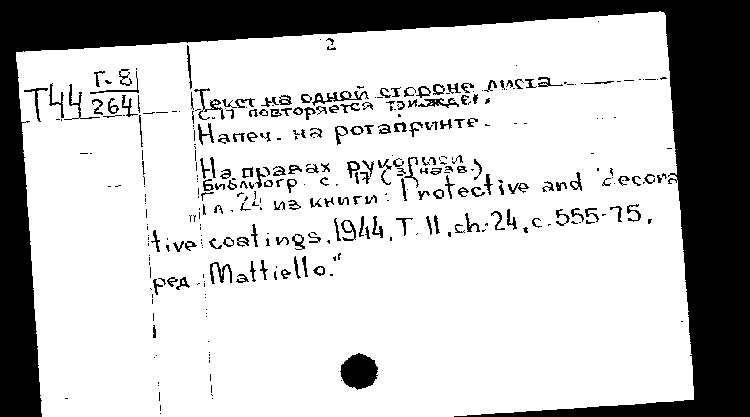 2
Т44 Г-8
264
Текст на одной стороне листа
с.17 повторяется трижды.
Напеч. на ротапринте.
На правах рукописи
Библиогр. с. 17 (31 назв.)
Гл. 24 из книги: Protective and decora
tive coatings, 1944, T. II, ch. 24, с. 555-75,
ред. Mattiello."